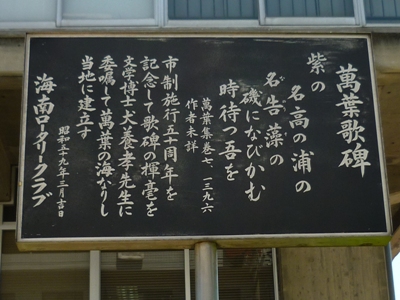 萬葉歌碑
紫の
名高の浦の
名告藻の
磯になびかむ
時待つ吾を
萬葉集巻七 一三九六
作者未詳
市制施行五十周年を
記念して歌碑の揮毫を
文学博士犬養孝先生に
委嘱して萬葉の海なりし
当地に建立す
昭和五十九年三月吉日
海南ロータリークラブ